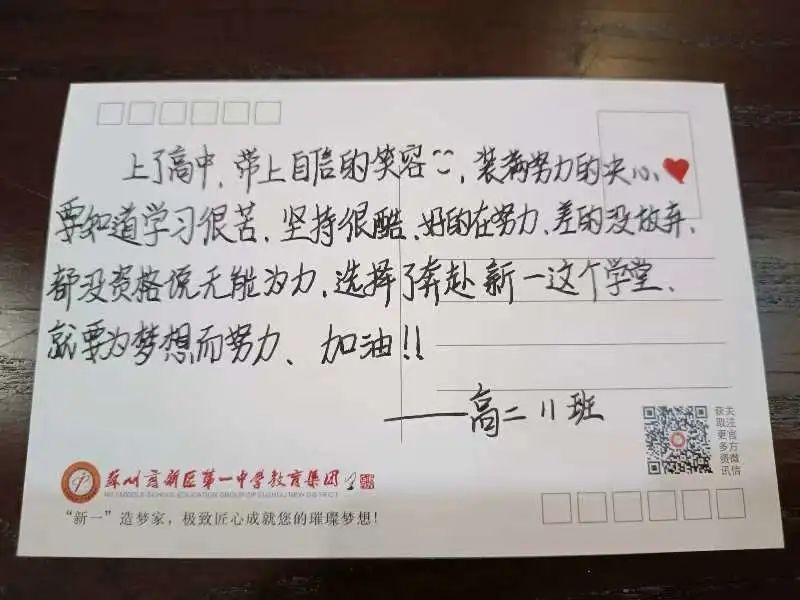 上了高中，带上自信的笑容，装满努力的决心、
要知道学习很苦、坚持很酷、好的在努力、差的没放弃、
都没资格说无能为力、选择了奔赴新一这个学堂、
就要为梦想而努力、加油!!
——高二11班
关注官方微信
获取更多资讯
苏州高新区第一中学教育集团
NO.1 MIDDLE SCHOOL EDUCATION GROUP OF SUZHOU NEW DISTRICT
“新一”造梦家，极致匠心成就您的璀璨梦想!